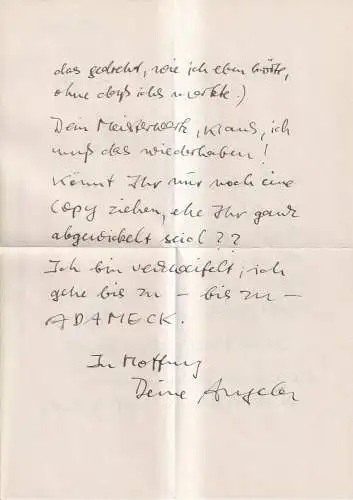 das gedreht, wie ich eben hörte,
ohne daß ichs merkte.)
Dein Meisterwerk, Klaus, ich
muß das wiederhaben!
Könnt Ihr mir noch eine
Copy ziehen, ehe Ihr ganz
abgewickelt seid??
Ich bin verzweifelt, ich
gehe bis zu – bis zu –
ADAMECK.
In Hoffnung
Deine